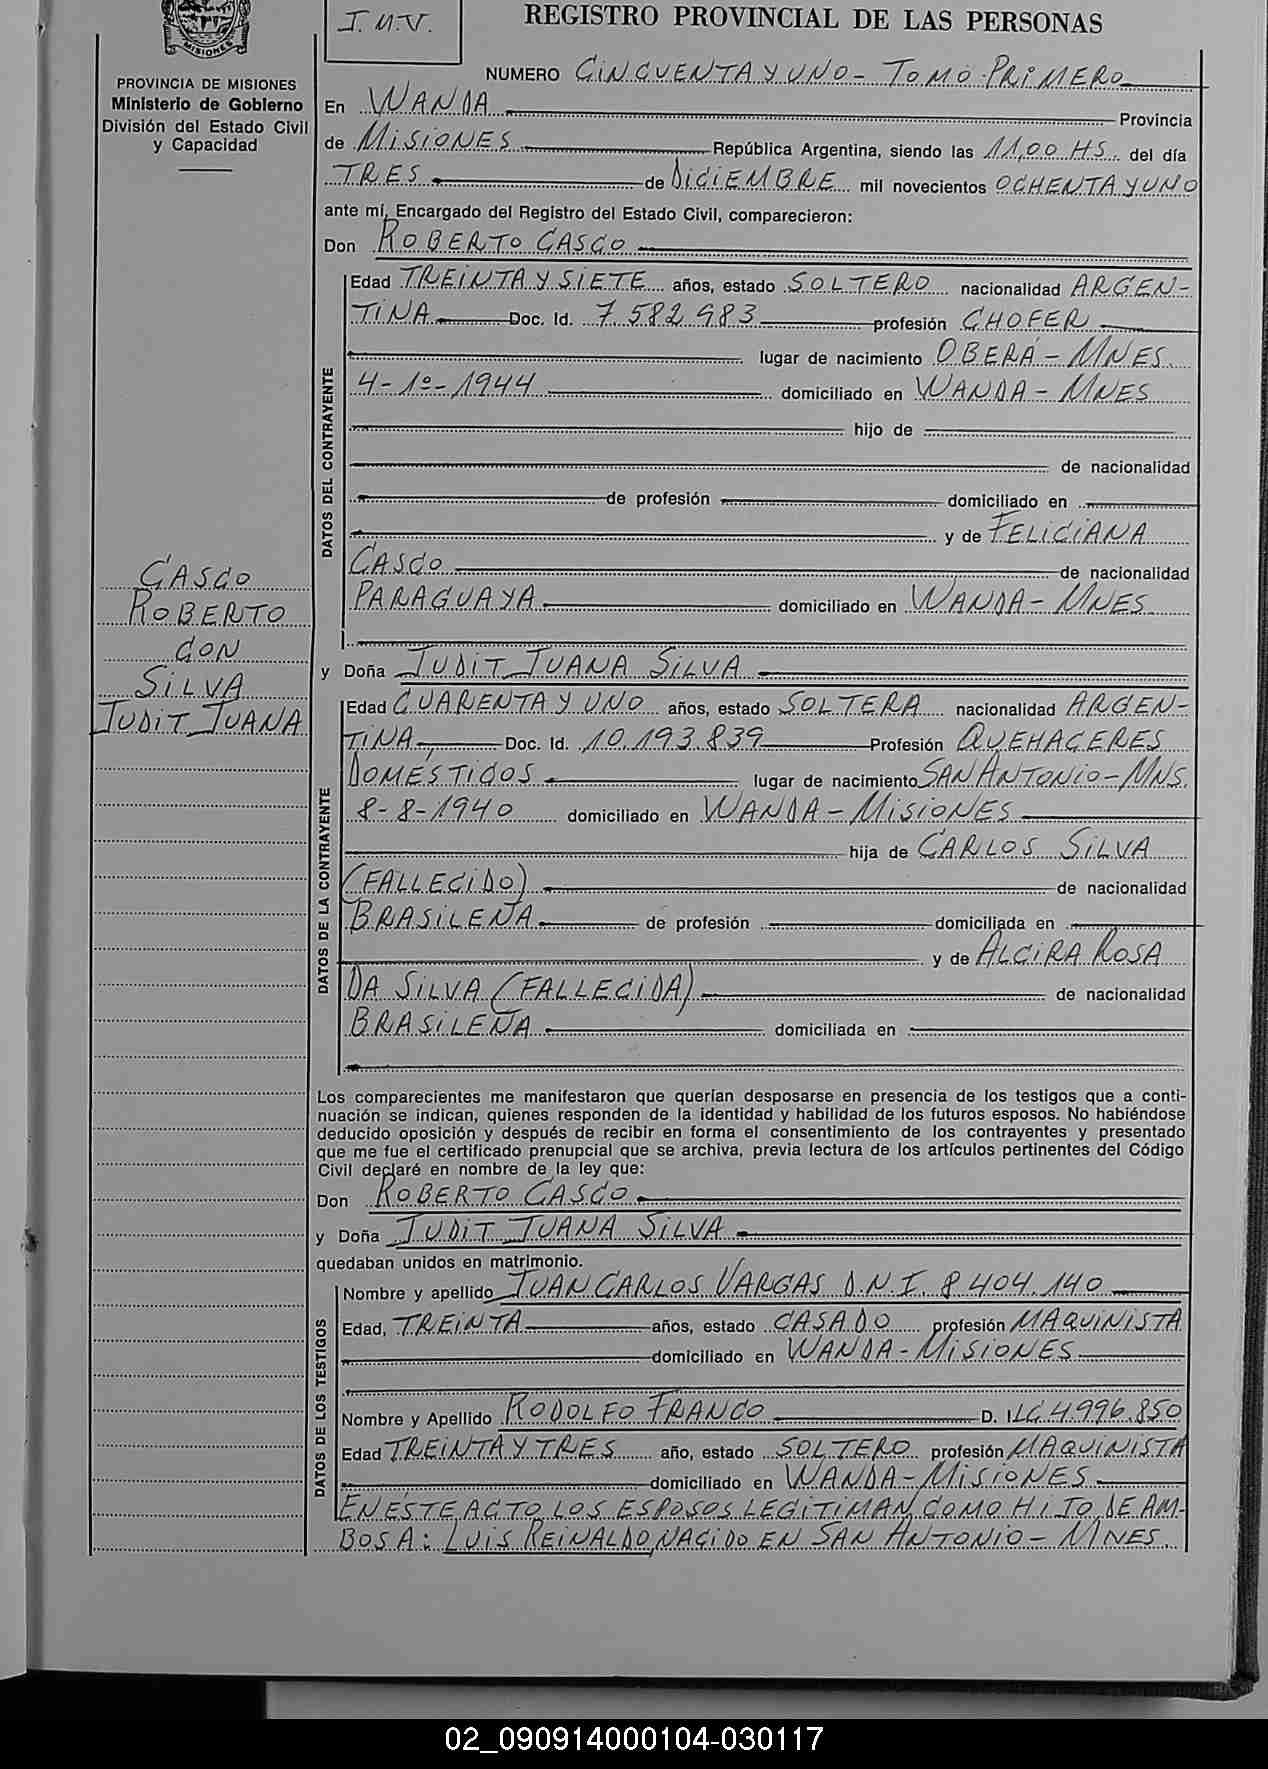 MISIONES
I.M.V.
REGISTRO PROVINCIAL DE LAS PERSONAS
PROVINCIA DE MISIONES
Ministerio de Gobierno
División del Estado Civil
y Capacidad
CASCO
ROBERTO
CON
SILVA
JUDIT JUANA
NUMERO CINCUENTA Y UNO - TOMO PRIMERO
En WANDA Provincia
de MISIONES República Argentina, siendo las 11,00 HS. del día
TRES de DICIEMBRE mil novecientos OCHENTA Y UNO
ante mí, Encargado del Registro del Estado Civil, comparecieron:
Don ROBERTO CASCO
DATOS DEL CONTRAYENTE
Edad TREINTA Y SIETE años, estado SOLTERO nacionalidad ARGEN-
TINA Doc. Id. 7.582.983 profesión CHOFER
lugar de nacimiento OBERÁ - MNES.
4-1º-1944 domiciliado en WANDA - MNES
hijo de
de nacionalidad
de profesión domiciliado en
y de FELICIANA
CASCO de nacionalidad
PARAGUAYA domiciliado en WANDA - MNES
y Doña JUDIT JUANA SILVA
DATOS DE LA CONTRAYENTE
Edad CUARENTA Y UNO años, estado SOLTERA nacionalidad ARGEN-
TINA Doc. Id. 10.193.839 Profesión QUEHACERES
DOMÉSTICOS lugar de nacimiento SAN ANTONIO - MNS.
8-8-1940 domiciliado en WANDA - MISIONES
hija de CARLOS SILVA
(FALLECIDO) de nacionalidad
BRASILEÑA de profesión domiciliada en
y de ALCIRA ROSA
DA SILVA (FALLECIDA) de nacionalidad
BRASILEÑA domiciliada en
Los comparecientes me manifestaron que querían desposarse en presencia de los testigos que a conti-
nuación se indican, quienes responden de la identidad y habilidad de los futuros esposos. No habiéndose
deducido oposición y después de recibir en forma el consentimiento de los contrayentes y presentado
que me fue el certificado prenupcial que se archiva, previa lectura de los artículos pertinentes del Código
Civil declaré en nombre de la ley que:
Don ROBERTO CASCO
y Doña JUDIT JUANA SILVA
quedaban unidos en matrimonio.
DATOS DE LOS TESTIGOS
Nombre y apellido JUAN CARLOS VARGAS D.N.I. 8.404.140
Edad, TREINTA años, estado CASADO profesión MAQUINISTA
domiciliado en WANDA - MISIONES
Nombre y Apellido RODOLFO FRANCO D. I L.C 4.996.850
Edad TREINTA Y TRES año, estado SOLTERO profesión MAQUINISTA
domiciliado en WANDA - MISIONES
EN ESTE ACTO LOS ESPOSOS LEGITIMAN COMO HIJO DE AM-
BOS A: LUIS REINALDO, NACIDO EN SAN ANTONIO - MNES.
02_090914000104-030117